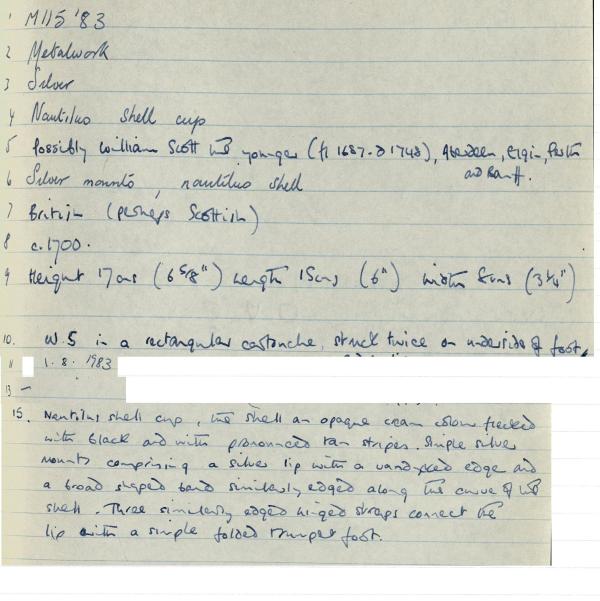 1 M115 '83
2 Metalwork
3 Silver
4 Nautilus shell cup
5 Possibly William Scott the younger (fl 1687-d 1748), Aberdeen, Elgin, Perth
and Banff.
6 Silver mounts, nautilus shell
7 British (perhaps Scottish)
8 c.1700.
9 Height 17cms (6 5/8") Length 15cms (6") width 8cms (3 1/4")
10. W.S in a rectangular cartouche, struck twice on underside of foot,
11 1. 8. 1983
13 —
15. Nautilus shell cup, the shell an opaque cream colour flecked
with black and with pronounced tan stripes. Simple silver
mounts comprising a silver lip with a vandyked edge and
a broad shaped band similarly edged along the curve of the
shell. Three similarly edged hinged straps connect the
lip with a simple folded trumpet foot.